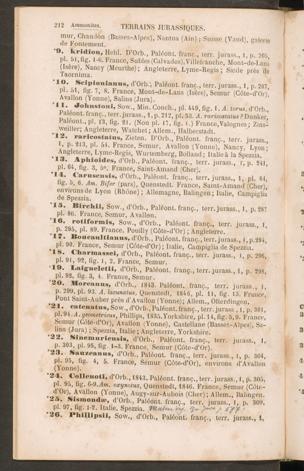 212 Ammonites. TERRAINS JURASSIQUES.
mur, Chandon (Basses-Alpes), Nantua (Ain); Suisse (Vaud), galerie
de Fontement.
*9. kridion, Hehl. D'Orb., Paléont. franç., terr. jurass., 1, p. 205,
pl. 51, fig. 1-6. France, Subles (Calvados), Villefranche, Mont-de-Lans
(Isère), Nancy (Meurthe); Angleterre, Lyme-Regis; Sicile près de
Taormina.
*10. Scipionianus, d'Orb., Paléont. franç., terr. jurass., 1, p. 207,
pl. 51, fig. 7, 8. France, Mont-de-Lans (Isère), Semur (Côte-d'Or),
Avallon (Yonne), Salins (Jura).
*11. Johnstoni, Sow., Min. Conch., pl. 449, fig. 1. A. torus, d'Orb.,
Paléont. franç., terr. jurass., 1, p. 212, pl. 53. A. raricostatus? Dunker,
Paléont., pl. 13, fig. 21. (Non pl. 17, fig. 1.) France, Valognes; Zins-
weiller; Angleterre, Watchet; Allem., Halberstadt.
*12. raricostatus, Zieten. D'Orb., Paléont. franç., terr. jurass.,
1, p. 213, pl. 54. France, Semur, Avallon (Yonne), Nancy, Lyon;
Angleterre, Lyme-Regis, Wurtemberg, Bolland; Italie à la Spezzia.
*13. Aphioides, d'Orb., Paléont. franç., terr. jurass., 1, p. 241,
pl. 64, fig. 3, 5. France, Saint-Amand (Cher).
*14. Carusensis, d'Orb., Paléont. franç., terr. jurass., 1, pl. 64,
fig. 5, 6. Am. Bifer (pars), Quenstedt. France, Saint-Amand (Cher),
environs de Lyon (Rhône); Allemagne, Balingen; Italie, Campiglia
de Spezzia.
*15. Birchii, Sow., d'Orb., Paléont. franç., terr. jurass., 1, p. 287
pl. 86. France, Semur, Avallon.
*16. rotiformis, Sow., d'Orb., Paléont. franç., terr. jurass., 1,
p. 293, pl. 89. France, Pouilly (Côte-d'Or); Angleterre.
*17. Boucaultianus, d'Orb., Paléont. franç., terr. jurass., 1, p. 294,
pl. 90. France, Semur (Côte-d'Or); Italie, Campiglia de Spezzia.
*18. Charmassei, d'Orb., Paléont. franç., terr. jurass., 1, p. 296,
pl. 91, 92, fig. 1, 2. France, Semur.
*19. Laigneletii, d'Orb., Paléont. franç., terr. jurass., 1, p. 298,
pl. 92, fig. 3, 4. France, Semur.
*20. Moreanus, d'Orb., 1843. Paléont. franç., terr. jurass., 1,
p. 299, pl. 93. A. lacunatus, Quenstedt, 1846, pl. 11, fig. 13. France,
Pont Saint-Auber près d'Avallon (Yonne); Allem., Olterdingen.
*21. catenatus, Sow., d'Orb., Paléont. franç., terr. jurass., 1, p. 301,
pl. 94. A. geometricus, Phillips, 1835, Yorkshire, pl. 14, fig. 5, 9. France,
Semur (Côte-d'Or), Avallon (Yonne), Castellane (Basses-Alpes), Sa-
lins (Jura); Spezzia, Italie; Angleterre, Yorkshire.
*22. Sinemuriensis, d'Orb., Paléont. franç., terr. jurass.,
1, p. 303, pl. 95, fig. 1-3. France, Semur (Côte-d'Or).
*23. Sauzeanus, d'Orb., Paléont. franç., terr. jurass., 1, p. 304,
pl. 95, fig. 4, 5. France, Semur (Côte-d'Or), environs d'Avallon
(Yonne).
*24. Collenoti, d'Orb., 1843. Paléont. franç., terr. jurass., 1, p. 305,
pl. 95, fig. 6-9. Am. oxynotus, Quenstedt, 1846. France, Semur (Côte-
d'Or), Avallon (Yonne), Augy-sur-Aubois (Cher); Allem., Balingen.
*25. Sismondæ, d'Orb., Paléont. franç., terr. jurass., 1, p. 309,
pl. 97, fig. 1-2. Italie, Spezzia.
*26. Phillipsii, Sow., d'Orb., Paléont. franç., terr. jurass., 1,